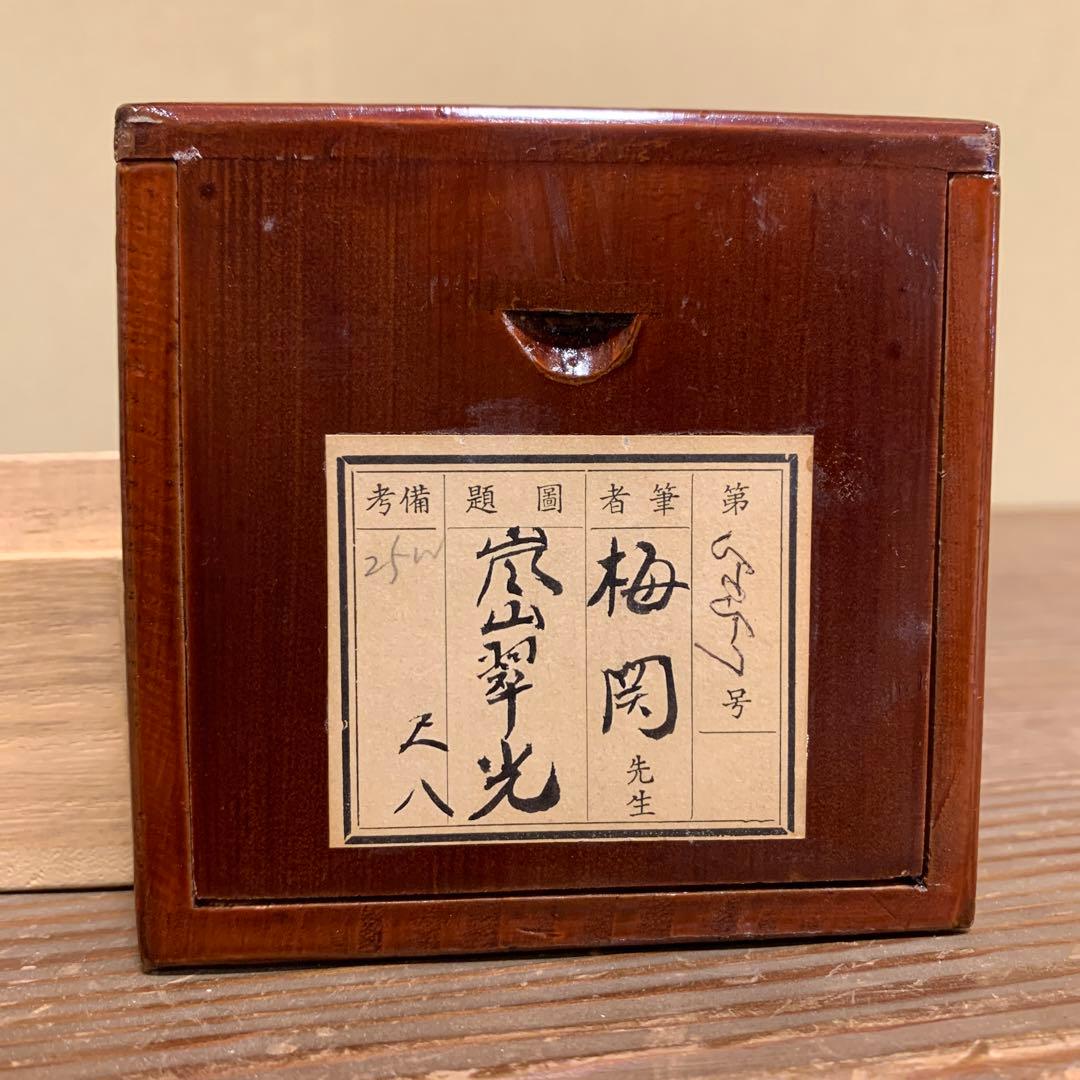 第 号
筆者
梅関先生
圖題
嵐山翠光
備考
尺八
25W